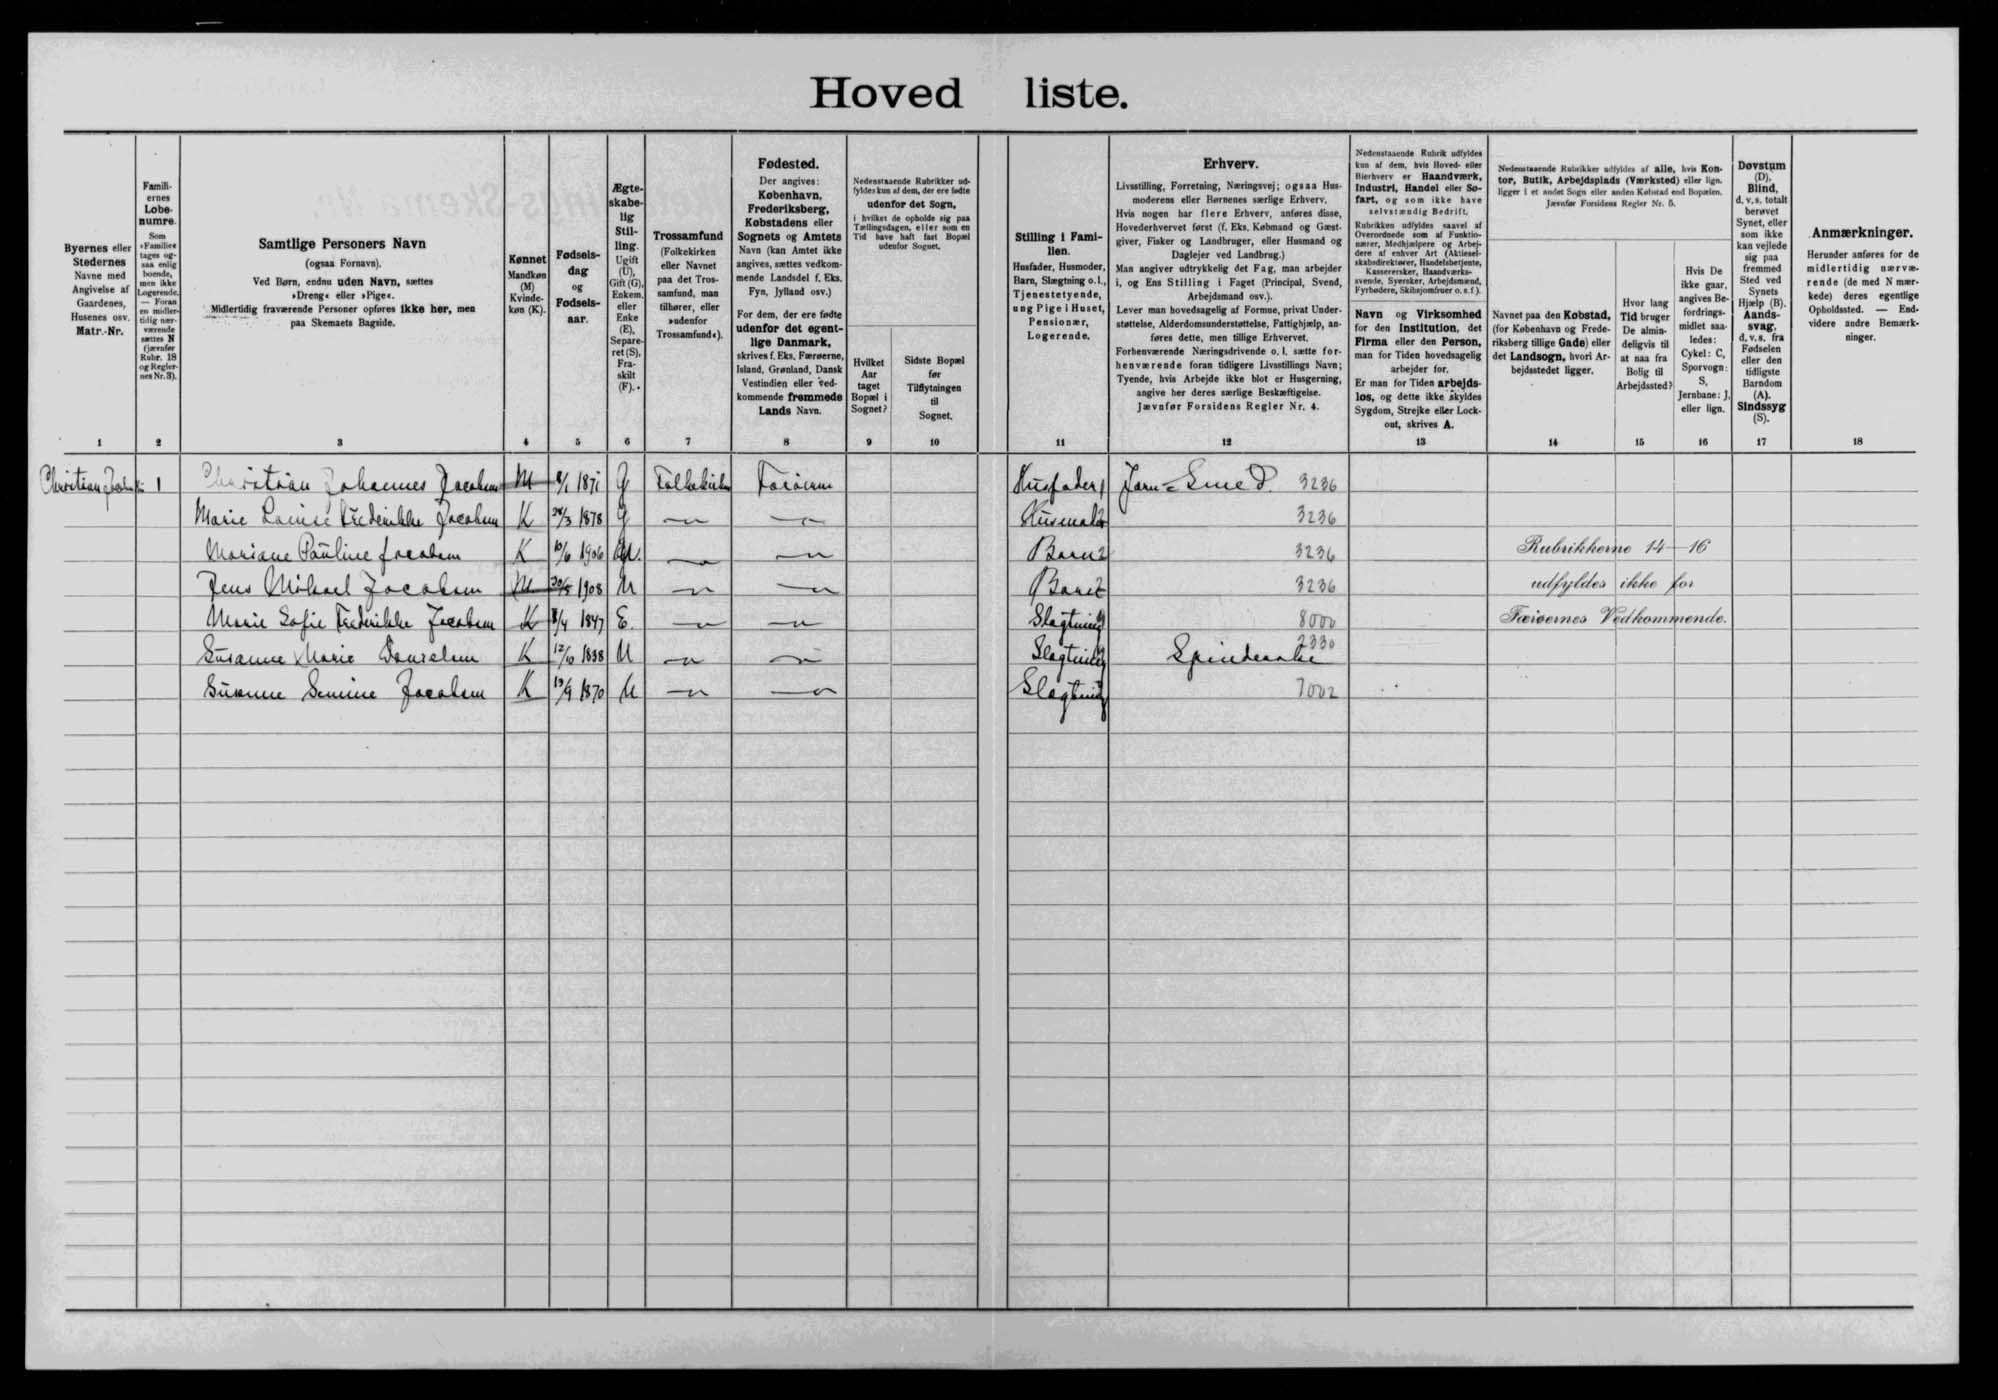 Hoved liste.
Byernes eller
Stedernes
Navne med
Angivelse af
Gaardenes,
Husenes osv.
Matr.-Nr.
1
Famili-
ernes
Løbe-
numre.
Som
»Familie«
tages og-
saa enlig
boende,
men ikke
Logerende.
— Foran
en midler-
tidig nær-
værende
sættes N
(jævnfør
Rubr. 18
og Regler-
nes Nr. 3).
2
Samtlige Personers Navn
(ogsaa Fornavn).
Ved Børn, endnu uden Navn, sættes
»Dreng« eller »Pige«.
Midlertidig fraværende Personer opføres ikke her, men
paa Skemaets Bagside.
3
Kønnet
Mandkøn
(M)
Kvinde-
køn (K).
4
Fødsels-
dag
og
Fødsels-
aar.
5
Ægte-
skabe-
lig
Stil-
ling.
Ugift
(U),
Gift (G),
Enkem.
eller
Enke
(E),
Separe-
ret (S),
Fra-
skilt
(F).
6
Trossamfund
(Folkekirken
eller Navnet
paa det Tros-
samfund, man
tilhører, eller
»udenfor
Trossamfund«).
7
Fødested.
Der angives:
København,
Frederiksberg,
Købstadens eller
Sognets og Amtets
Navn (kan Amtet ikke
angives, sættes vedkom-
mende Landsdel f. Eks.
Fyn, Jylland osv.)
For dem, der ere fødte
udenfor det egent-
lige Danmark,
skrives f. Eks. Færøerne,
Island, Grønland, Dansk
Vestindien eller ved-
kommende fremmede
Lands Navn.
8
Nedenstaaende Rubrikker ud-
fyldes kun af dem, der ere fødte
udenfor det Sogn,
i hvilket de opholde sig paa
Tællingsdagen, eller som en
Tid have haft fast Bopæl
udenfor Sognet.
Hvilket
Aar
taget
Bopæl i
Sognet?
9
Sidste Bopæl
før
Tilflytningen
til
Sognet.
10
Stilling i Fami-
lien.
Husfader, Husmoder,
Barn, Slægtning o.l.,
Tjenestetyende,
ung Pige i Huset,
Pensionær,
Logerende.
11
Erhverv.
Livsstilling, Forretning, Næringsvej; ogsaa Hus-
moderens eller Børnenes særlige Erhverv.
Hvis nogen har flere Erhverv, anføres disse,
Hovederhvervet først (f. Eks. Købmand og Gæst-
giver, Fisker og Landbruger, eller Husmand og
Daglejer ved Landbrug.)
Man angiver udtrykkelig det Fag, man arbejder
i, og Ens Stilling i Faget (Principal, Svend,
Arbejdsmand osv.).
Lever man hovedsagelig af Formue, privat Under-
støttelse, Alderdomsunderstøttelse, Fattighjælp, an-
føres dette, men tillige Erhvervet.
Forhenværende Næringsdrivende o. l. sætte for-
henværende foran tidligere Livsstillings Navn;
Tyende, hvis Arbejde ikke blot er Husgerning,
angive her deres særlige Beskæftigelse.
Jævnfør Forsidens Regler Nr. 4.
12
Nedenstaaende Rubrik udfyldes
kun af dem, hvis Hoved- eller
Bierhverv er Haandværk,
Industri, Handel eller Sø-
fart, og som ikke have
selvstændig Bedrift.
Rubrikken udfyldes saavel af
Overordnede som af Funktio-
nærer, Medhjælpere og Arbej-
dere af enhver Art (Aktiesel-
skabsdirektører, Handelsbetjente,
Kassererersker, Haandværks-
svende, Syersker, Arbejdsmænd,
Fyrbødere, Skibsjomfruer o. s. f.).
Navn og Virksomhed
for den Institution, det
Firma eller den Person,
man for Tiden hovedsagelig
arbejder for.
Er man for Tiden arbejds-
løs, og dette ikke skyldes
Sygdom, Strejke eller Lock-
out, skrives A.
13
Nedenstaaende Rubrikker udfyldes af alle, hvis Kon-
tor, Butik, Arbejdsplads (Værksted) eller lign.
ligger i et andet Sogn eller anden Købstad end Bopælen.
Jævnfør Forsidens Regler Nr. 5.
Navnet paa den Købstad,
(for København og Frede-
riksberg tillige Gade) eller
det Landsogn, hvori Ar-
bejdsstedet ligger.
14
Hvor lang
Tid bruger
De almin-
deligvis til
at naa fra
Bolig til
Arbejdssted?
15
Hvis De
ikke gaar,
angives Be-
fordrings-
midlet saa-
ledes:
Cykel: C,
Sporvogn:
S,
Jernbane: J,
eller lign.
16
Døvstum
(D),
Blind,
d. v. s. totalt
berøvet
Synet, eller
som ikke
kan vejlede
sig paa
fremmed
Sted ved
Synets
Hjælp (B),
Aands-
svag,
d. v. s. fra
Fødselen
eller den
tidligste
Barndom
(A).
Sindssyg
(S).
17
Anmærkninger.
Herunder anføres for de
midlertidig nærvæ-
rende (de med N mær-
kede) deres egentlige
Opholdssted. — End-
videre andre Bemærk-
ninger.
18
Christian 1 Christian Johannes Jacobsen M 1871 G Folkekirken Færøerne Husfader 1 Jern-Smed. 3236
Marie Louise Frederikke Jacobsen K 28/3 1878 G 3236
Mariane Pauline Jacobsen K 10/6 1906 U. Barn 2 3236 Rubrikkerne 14-16
Jens Mikael Jacobsen M 20/5 1908 U Barn 2 3236 udfyldes ikke for
Marie Sofie Frederikke Jacobsen K 1847 E. Slægtning 8000 Færøernes Vedkommende.
Susanne Marie K 12/10 1838 U Slægtning Spinderske 2330
Susanne Semine Jacobsen K 13/9 1870 U Slægtning 7002